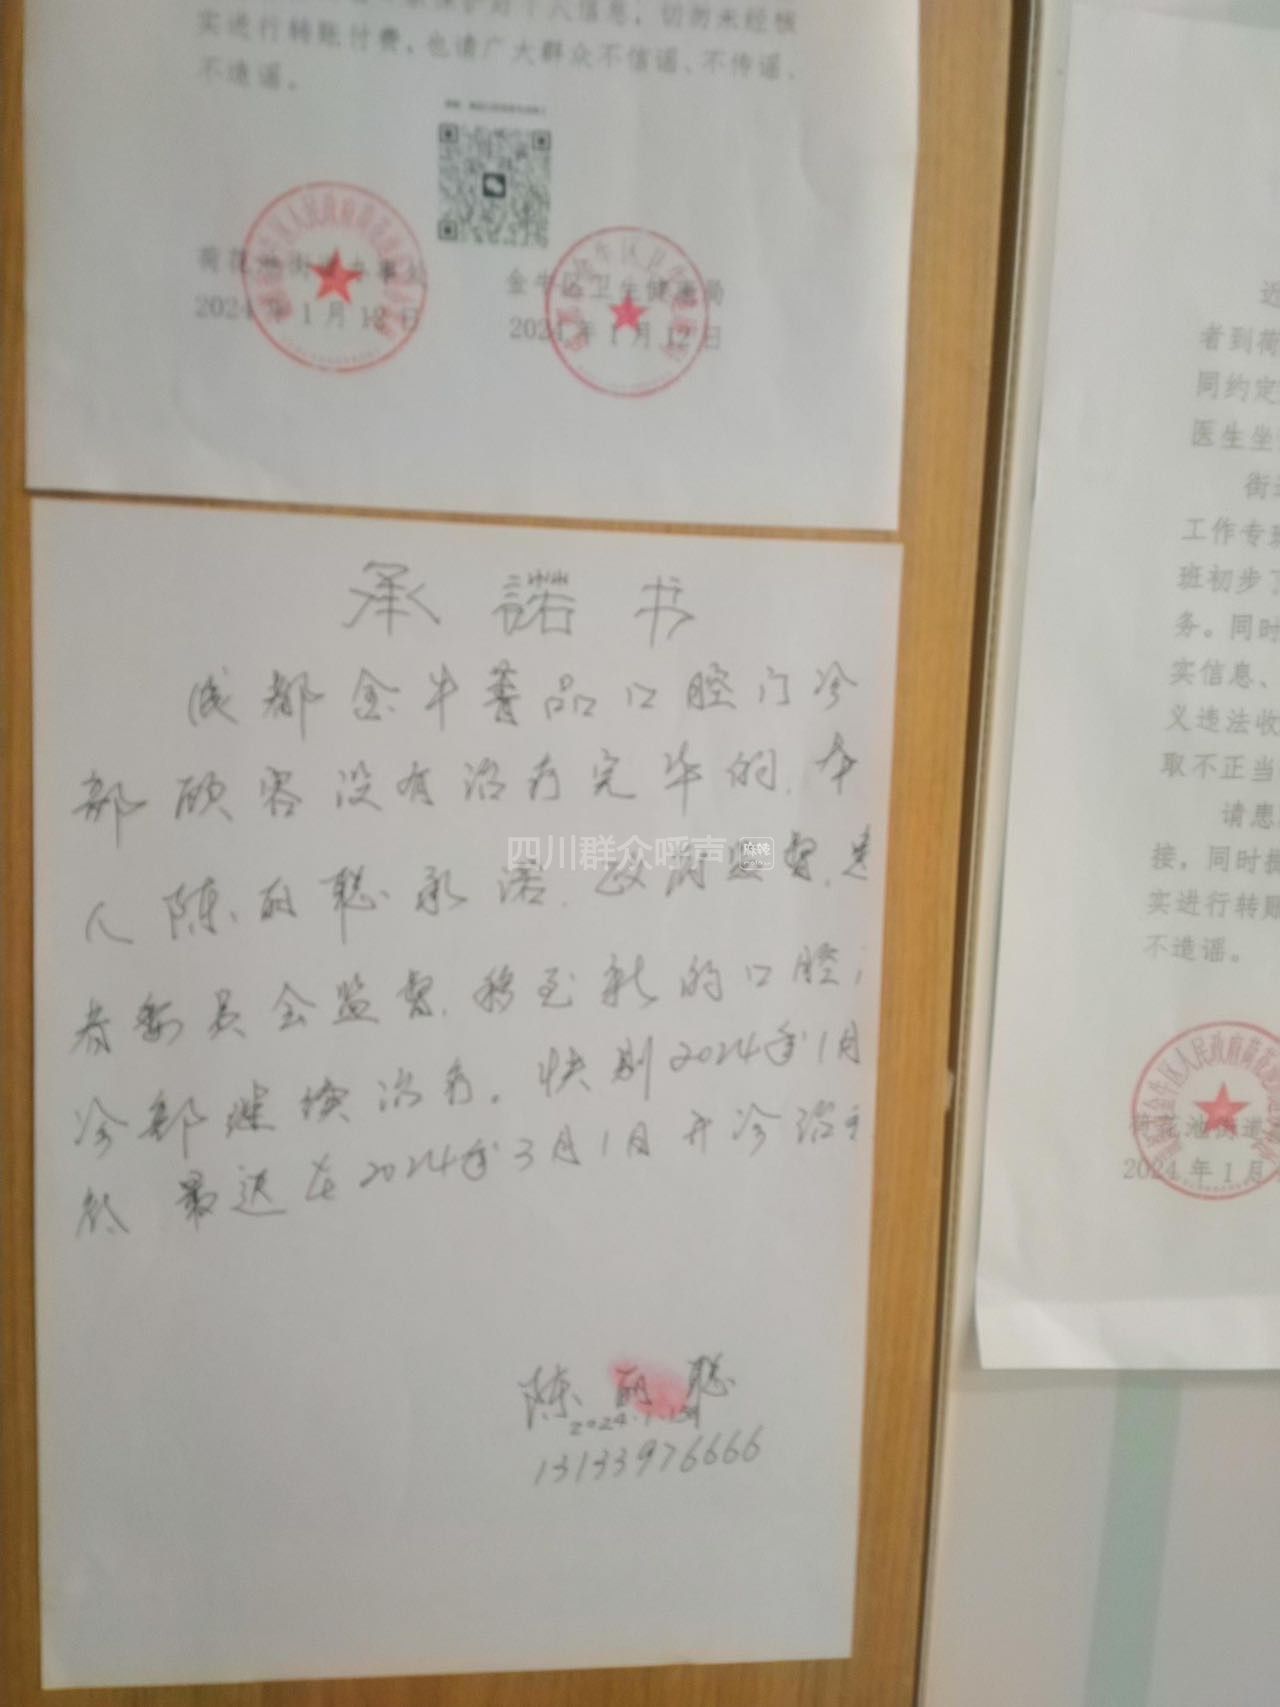 保护好个人信息,切勿未经核
实进行转账付费,也请广大群众不信谣、不传谣、
不造谣。
荷花池街道办事处
2024年1月12日
金牛区卫生健康局
2024年1月12日
承诺书
成都金牛菁品口腔门诊
部顾客没有治疗完毕的,本
人陈丽聪承诺.政府监督,患
者委员会监督,移至新的口腔
诊部继续治疗。快则2024年1月
底 最迟在2024年3月1日开诊治疗
陈丽聪
2024.1.13
13133976666
四川群众呼声
麻辣
近
者到荷
同约定
医生坐
街道
工作专班
班初步了
务。同时
实信息、
义违法收
取不正当
请患
接,同时提
实进行转账
不造谣。
荷花池街道
2024年1月